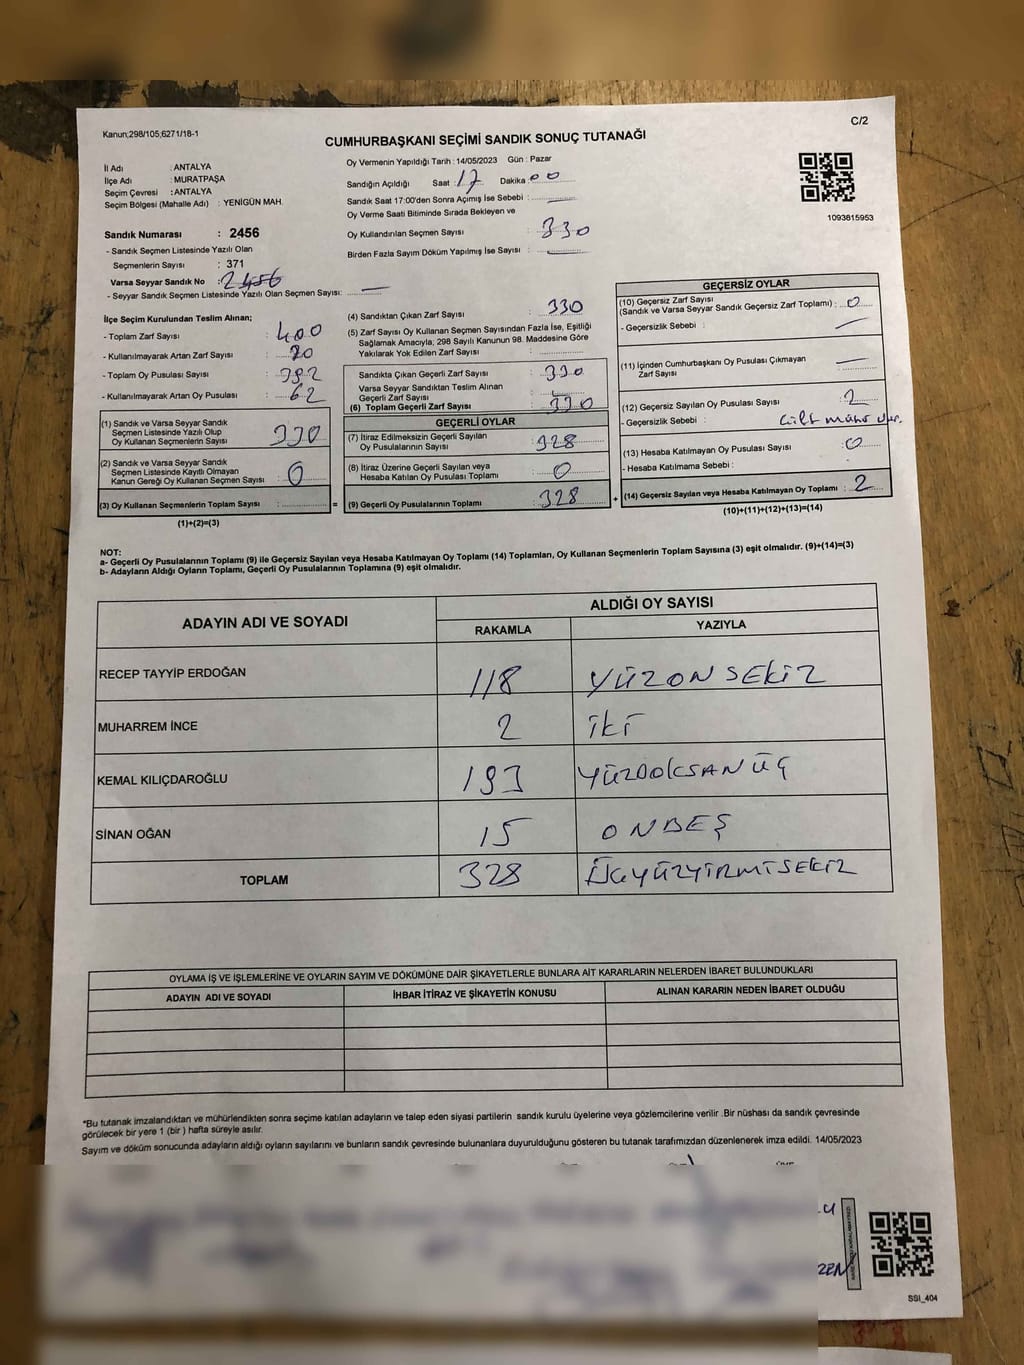 Kanun;298/105,6271/18-1
C/2
CUMHURBAŞKANI SEÇİMİ SANDIK SONUÇ TUTANAĞI
İl Adı : ANTALYA
İlçe Adı : MURATPAŞA
Seçim Çevresi : ANTALYA
Seçim Bölgesi (Mahalle Adı) : YENİGÜN MAH.
Oy Vermenin Yapıldığı Tarih : 14/05/2023 Gün : Pazar
Sandığın Açıldığı Saat : 17 Dakika : 00
Sandık Saat 17:00'den Sonra Açımış İse Sebebi :
Oy Verme Saati Bitiminde Sırada Bekleyen ve
Oy Kullandırılan Seçmen Sayısı : 330
Birden Fazla Sayım Döküm Yapılmış İse Sayısı :
1093815953
Sandık Numarası : 2456
- Sandık Seçmen Listesinde Yazılı Olan
Seçmenlerin Sayısı : 371
Varsa Seyyar Sandık No : 2456
- Seyyar Sandık Seçmen Listesinde Yazılı Olan Seçmen Sayısı:
İlçe Seçim Kurulundan Teslim Alınan;
- Toplam Zarf Sayısı : 400
- Kullanılmayarak Artan Zarf Sayısı : 70
- Toplam Oy Pusulası Sayısı : 392
- Kullanılmayarak Artan Oy Pusulası : 62
(1) Sandık ve Varsa Seyyar Sandık
Seçmen Listesinde Yazılı Olup
Oy Kullanan Seçmenlerin Sayısı : 330
(2) Sandık ve Varsa Seyyar Sandık
Seçmen Listesinde Kayıtlı Olmayan
Kanun Gereği Oy Kullanan Seçmen Sayısı : 0
(3) Oy Kullanan Seçmenlerin Toplam Sayısı : =
(1)+(2)=(3)
(4) Sandıktan Çıkan Zarf Sayısı : 330
(5) Zarf Sayısı Oy Kullanan Seçmen Sayısından Fazla İse, Eşitliği
Sağlamak Amacıyla; 298 Sayılı Kanunun 98. Maddesine Göre
Yakılarak Yok Edilen Zarf Sayısı :
Sandıkta Çıkan Geçerli Zarf Sayısı : 330
Varsa Seyyar Sandıktan Teslim Alınan
Geçerli Zarf Sayısı :
(6) Toplam Geçerli Zarf Sayısı : 330
GEÇERLİ OYLAR
(7) İtiraz Edilmeksizin Geçerli Sayılan
Oy Pusulalarının Sayısı : 328
(8) İtiraz Üzerine Geçerli Sayılan veya
Hesaba Katılan Oy Pusulası Toplamı : 0
(9) Geçerli Oy Pusulalarının Toplamı : 328 +
GEÇERSİZ OYLAR
(10) Geçersiz Zarf Sayısı
(Sandık ve Varsa Seyyar Sandık Geçersiz Zarf Toplamı) : 0
- Geçersizlik Sebebi :
(11) İçinden Cumhurbaşkanı Oy Pusulası Çıkmayan
Zarf Sayısı :
(12) Geçersiz Sayılan Oy Pusulası Sayısı : 2
- Geçersizlik Sebebi : Çift mühür
(13) Hesaba Katılmayan Oy Pusulası Sayısı : 0
- Hesaba Katılmama Sebebi :
(14) Geçersiz Sayılan veya Hesaba Katılmayan Oy Toplamı : 2
(10)+(11)+(12)+(13)=(14)
NOT:
a- Geçerli Oy Pusulalarının Toplamı (9) ile Geçersiz Sayılan veya Hesaba Katılmayan Oy Toplamı (14) Toplamları, Oy Kullanan Seçmenlerin Toplam Sayısına (3) eşit olmalıdır. (9)+(14)=(3)
b- Adayların Aldığı Oyların Toplamı, Geçerli Oy Pusulalarının Toplamına (9) eşit olmalıdır.
ADAYIN ADI VE SOYADI ALDIĞI OY SAYISI
RAKAMLA YAZIYLA
RECEP TAYYİP ERDOĞAN 118 YÜZONSEKİZ
MUHARREM İNCE 2 İKİ
KEMAL KILIÇDAROĞLU 193 YÜZDOKSANÜÇ
SİNAN OĞAN 15 ONBEŞ
TOPLAM 328 ÜÇYÜZYİRMİSEKİZ
OYLAMA İŞ VE İŞLEMLERİNE VE OYLARIN SAYIM VE DÖKÜMÜNE DAİR ŞİKAYETLERLE BUNLARA AİT KARARLARIN NELERDEN İBARET BULUNDUKLARI
ADAYIN ADI VE SOYADI İHBAR İTİRAZ VE ŞİKAYETİN KONUSU ALINAN KARARIN NEDEN İBARET OLDUĞU
*Bu tutanak imzalandıktan ve mühürlendikten sonra seçime katılan adayların ve talep eden siyasi partilerin sandık kurulu üyelerine veya gözlemcilerine verilir .Bir nüshası da sandık çevresinde
görülecek bir yere 1 (bir ) hafta süreyle asılır.
Sayım ve döküm sonucunda adayların aldığı oyların sayılarını ve bunların sandık çevresinde bulunanlara duyurulduğunu gösteren bu tutanak tarafımızdan düzenlenerek imza edildi. 14/05/2023
SSI_404